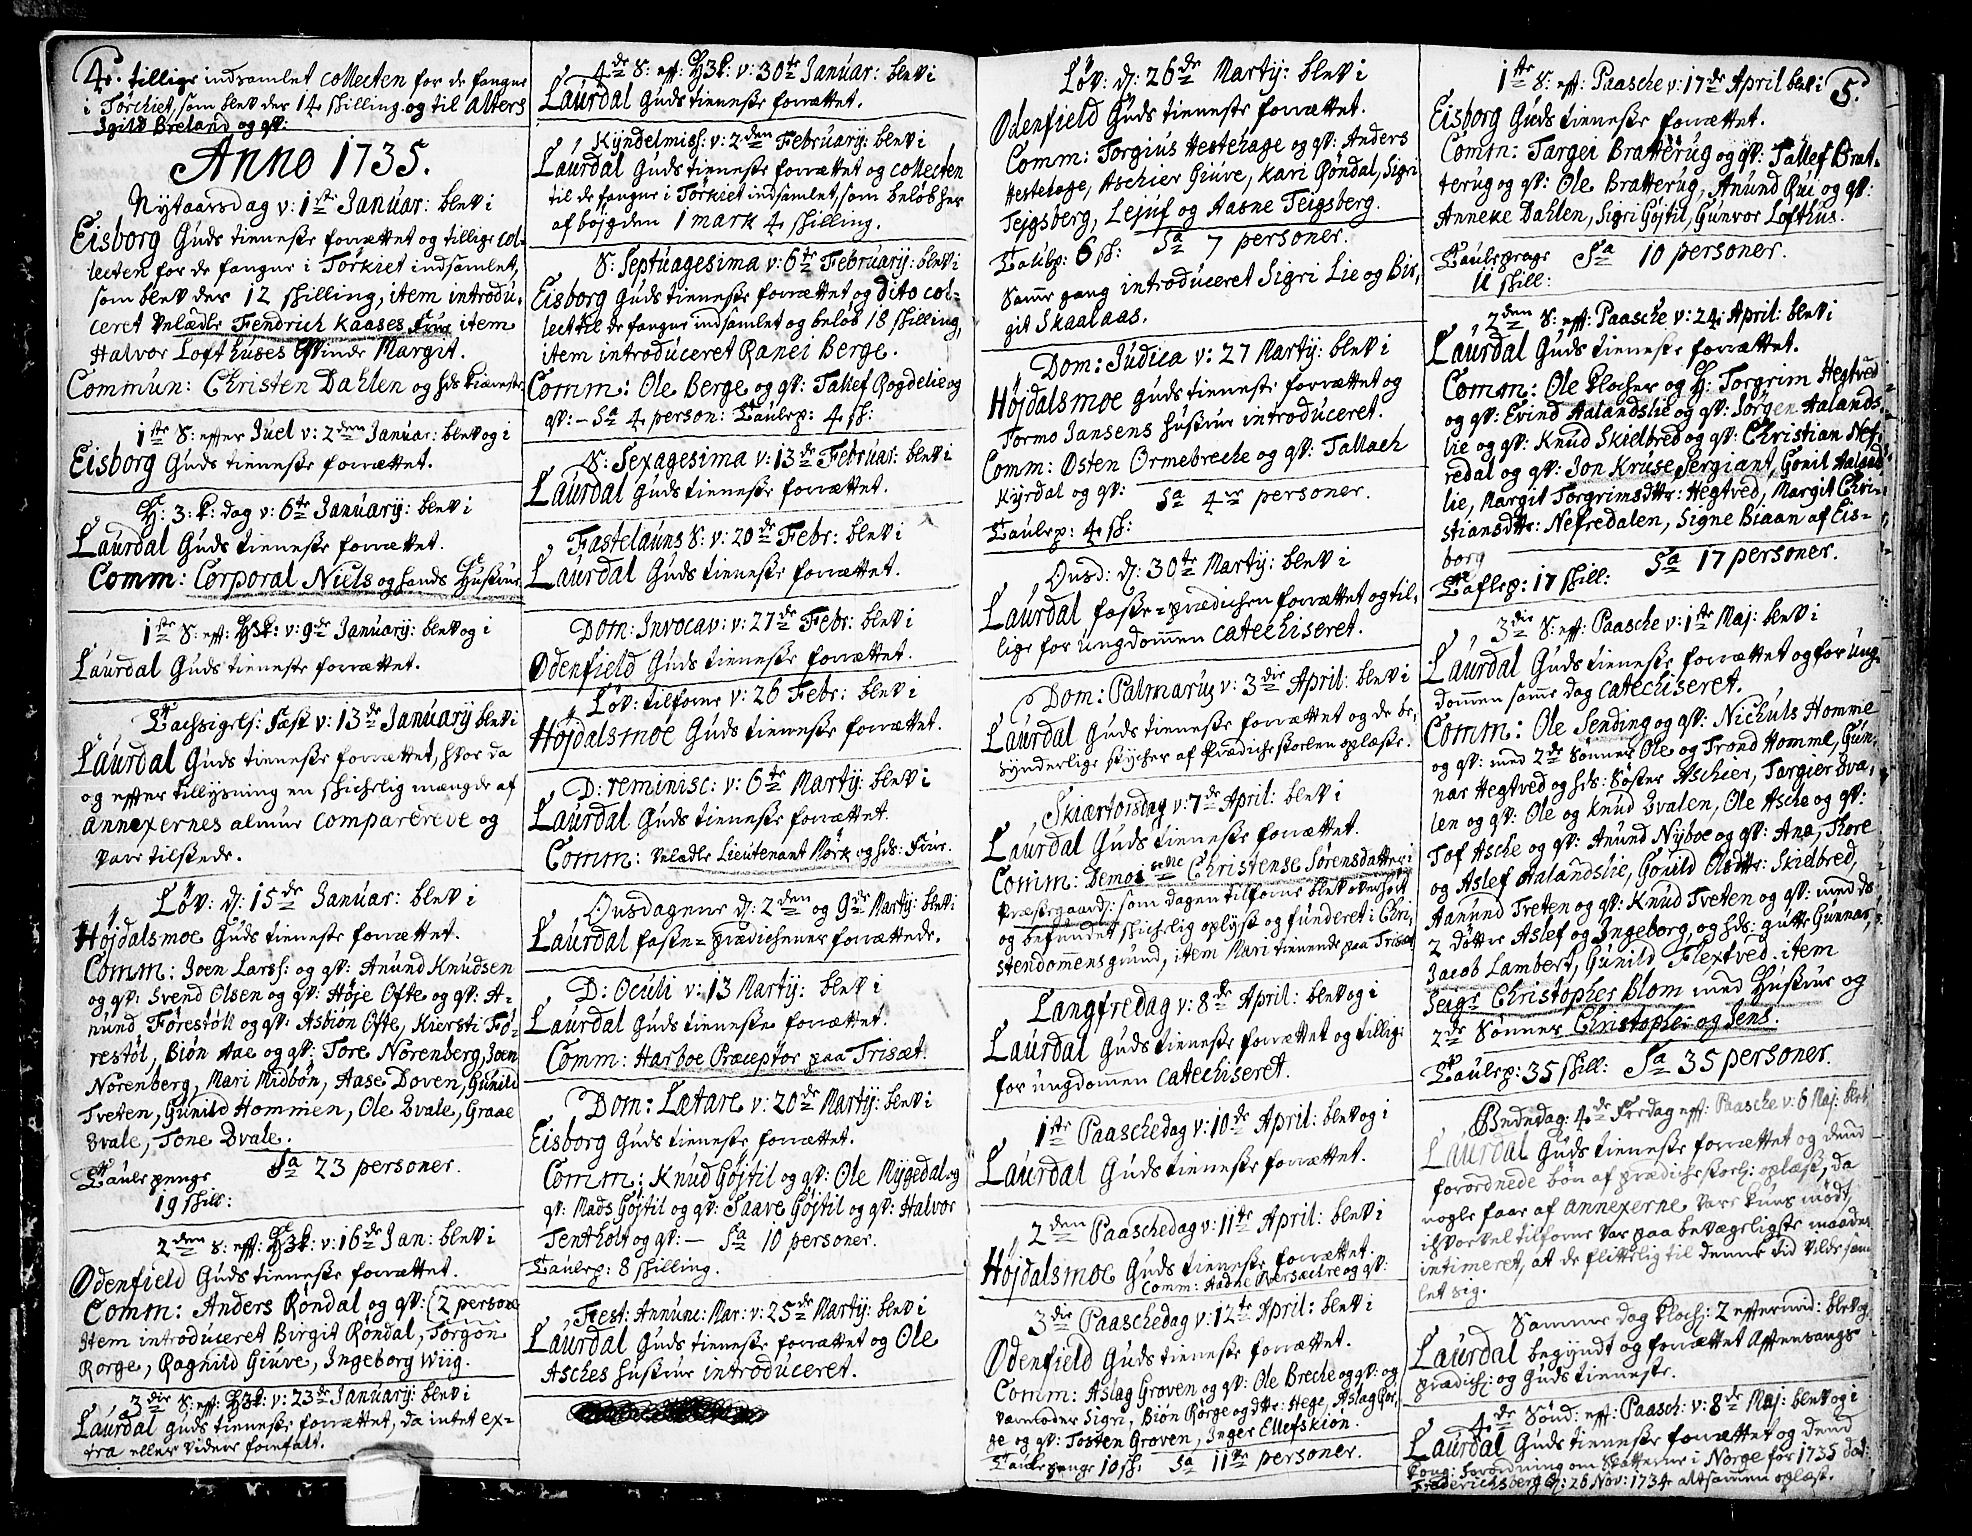 4. tillige indsamlet collecten for de fangne
i Törkiet, som blev der 14 skilling og til alters
Igild Breland og qv:
Anno 1735.
Nytaarsdag v: 1ste Januar: blev i
Eisborg Guds tieneste forrættet og tillige col-
lecten for de fangne i Törkiet indsamlet,
som blev der 12 skilling, item introdu-
ceret Velædle Fendrich Kaases Frue item
Halvor Lofthuses Qvinde Margit.
Commun: Christen Dahlen og hds kiæreste
1ste S: effter Juel v: 2den Januar: blev og i
Eisborg Guds tieneste forrættet.
H: 3: K: dag v: 6te Januarij: blev i
Laurdal Guds tieneste forrættet.
Comm: Corporal Niels og hands Hustrue
1ste S: eff: H3K: v: 9de Januarij: blev og i
Laurdal Guds tieneste forrættet.
Tachsigels: Fæst v: 13de Januarij blev i
Laurdal Guds tieneste forrættet, hvor da
og effter tillysning en skichelig mængde af
annexernes almue comparerede og
vare tilstede.
Löv: d: 15de Januar: blev i
Höjdalsmoe Guds tieneste forrættet.
Comm: Joen Larss: og qv: Anund Knudsen
og qv: Svend Olsen og qv: Höje Ofte og qv: A-
nund Förestöll og qv: Asbiön Ofte, Kiersti Fö-
restöl, Biön Aae og qv: Tore Norenberg, Joen
Norenberg, Mari Midbön, Aase Doven, Gunild
Tveten, Gunild Hommen, Ole Dvale, Graae
Dvale, Tone Dvale.
Taulepenge Sa 23 personer.
19 skill:
2den S: eff: H3K: v: 16de Jan: blev i
Odenfield Guds tieneste forrættet.
Comm: Anders Röndal og qv: (2 persone
Item introduceret Birgit Röndal, Torgon
Rorge, Ragnild Giuve, Ingeborg Wiig.
3die S: eff: H3K: v: 23de Januarij: blev i
Laurdal Guds tieneste forrættet, da intet ex-
tra eller videre forefalt.
4de S: eff: H3K: v: 30te Januar: blev i
Laurdal Guds tieneste forrættet.
Kyndelmiss: v: 2den Februarij: blev i
Laurdal Guds tieneste forrættet og collecten
til de fangne i Törkiet indsamlet, som beløb her
af bøjgden 1 mark 4 skilling.
S: Septuagesima v: 6te Februarij: blev i
Eisborg Guds tieneste forrættet og dito col-
lect til de fangne indsamlet og beløb 18 skilling,
item introduceret Ranei Berge.
Comm: Ole Berge og qv: Tallef Rogdelie og
qv: - Sa 4 person: Taulep: 4 sk:
S: Sexagesima v: 13de Februar: blev i
Laurdal Guds tieneste forrættet.
Fastelauns S: v: 20de Febr: blev i
Laurdal Guds tieneste forrættet.
Dom: Invocav: v: 27de Febr: blev i
Odenfield Guds tieneste forrættet.
Löv: tilforne v: 26 Febr: blev i
Höjdalsmoe Guds tieneste forrættet.
D: reminisc: v: 6te Martij: blev i
Laurdal Guds tieneste forrættet.
Comm: Velædle Lieutenant Mörk og hds: Frue.
Onsdagene d: 2den og 9de Martij: blev i
Laurdal faste-prædichener forrættede.
D: Oculi v: 13 Martij: blev i
Laurdal Guds tieneste forrættet.
Comm: Harboe Præceptor paa Trisæt.
Dom: Lætare v: 20de Martij: blev i
Eisborg Guds tieneste forrættet.
Comm: Knud Göjtil og qv: Ole Mygedal og
qv: Mads Göjtil og qv: Saave Göjtil og qv: Halvor
Tentholt og qv: - Sa 10 personer.
Taulep: 8 skilling.
Fest: Annunc: Mar: v: 25de Martij: blev i
Laurdal Guds tieneste forrættet og Ole
Asches hustrue introduceret.
Löv: d: 26de Martij: blev i
Odenfield Guds tieneste forrættet.
Comm: Torgius Hestehage og qv: Anders
Hestehage, Aschier Giuve, Kari Röndal, Sigri
Tejgsberg, Lejuf og Aasne Teigsberg.
Taulep: 6 sk: Sa 7 personer.
Samme gang introduceret Sigri Lie og Bir-
git Skaalaas.
Dom: Judica v: 27 Martij: blev i
Höjdalsmoe Guds tieneste forrættet og
Tormo Jansens hustrue introduceret.
Comm: Østen Ormebreche og qv: Tallach
Kyrdal og qv: Sa 4re personer.
Taulep: 4 sk:
Onsd: d: 30te Martij: blev i
Laurdal faste-prædichen forrættet og til-
lige for ungdommen catechiseret.
Dom: Palmarum v: 3die April: blev i
Laurdal Guds tieneste forrættet og de be-
synderlige stycher af Prædichestoelen oplæste.
Skiærtorsdag v: 7de April: blev i
Laurdal Guds tieneste forrættet.
Comm: Demoiselle Christense Sørensdatter i
Præstegaard: som dagen tilforne blev overhørt
og befundet skichelig oplyst og funderet i Chri-
stendommens grund, item Mari tienende paa Trisæt
Langfredag v: 8de April: blev og i
Laurdal Guds tieneste forrættet og tillige
for ungdommen catechiseret.
1ste Paaschedag v: 10de April: blev og i
Laurdal Guds tieneste forrættet.
2den Paaschedag v: 11te April: blev i
Höjdalsmoe Guds tieneste forrættet.
Comm: Aadne og qv:
3die Paaschedag v: 12te April: blev i
Odenfield Guds tieneste forrættet.
Comm: Aslag Groven og qv: Ole Breche og qv: og
Sigri, Biön Rörge og dtter: Hege, Aslag Rör-
ge og qv: Tosten Groven, Inger Ellefskion.
Taulepenge 10 sk: Sa 11te personer.
5.
1ste S: eff: Paasche v: 17de April blev i
Eisborg Guds tieneste forrættet.
Comm: Targei Bratterug og qv: Tallef Brat-
terug og qv: Ole Bratterug, Anund Rui og qv:
Anneke Dahlen, Sigri Göjtil, Gunvor Lofthus.
Taulepenge Sa 10 personer.
11 skill:
2den S: eff: Paasche v: 24 April: blev i
Laurdal Guds tieneste forrættet.
Comm: Ole Klocher og H: Torgrim Hegtved
og qv: Evind Aalandslie og qv: Jörgen Aalands-
lie og qv: Knud Skielbred og qv: Christian Nef-
redal og qv: Jon Kruse Sergiant, Gonil Aaland
lie, Margit Torgrimsdtter: Hegtved, Margit Chri-
stiansdtter: Nefredalen, Signe Biaan af Eis-
borg Sa 17 personer.
Taflep: 17 skill:
3die S: eff: Paasche v: 1ste Maj: blev i
Laurdal Guds tieneste forrættet og for ung-
dommen samme dag catechiseret.
Comm: Ole Sending og qv: Nichuls Homme
og qv: med 2de Sønner Ole og Trond Homme, Gun-
nar Hegtved og hds: Söster Aschier, Targier Dva-
len og qv: Ole og Knud Dvalen, Ole Asche og qv:
Tof Asche og qv: Anund Nyboe og qv: Ana, Thore
og Aslef Aalandslie, Gonild Olsdtter: Skielbred,
Aanund Tveten og qv: Knud Tveten og qv: med ds
2 döttre Aslef og Ingeborg, og hds: gutte Gunnar,
Jacob Lambert, Gunild Flextved: item
Seigr: Christopher Blom med Hustrue og
2de Sønner Christopher og Jens.
Taulep: 35 skill: Sa 35 personer.
4de Fredag eff: Paasche v: 6 Maj: blev
Laurdal Guds tieneste forrættet og dend
forordnede bøn af prædichestoel: oplæst, da
nogle faar af annexerne vare kuns mødt,
ihvorvel tilforne var paa bevægeligste maader
intimeret, at de flittelig til denne tid vilde sam
let sig.
Samme dag kloch: 2 eftermid: blev og
Laurdal begyndt og forrættet Afftensangs
prædich: og Guds tieneste.
4de Sönd: eff: Paasch: v: 8de Maj: blev og i
Laurdal Guds tieneste forrættet og dend
Kong: forordning om Skatterne i Norge for 1735 dat:
Frederichsberg d: 26 Nov: 1734 altsammen oplæst.